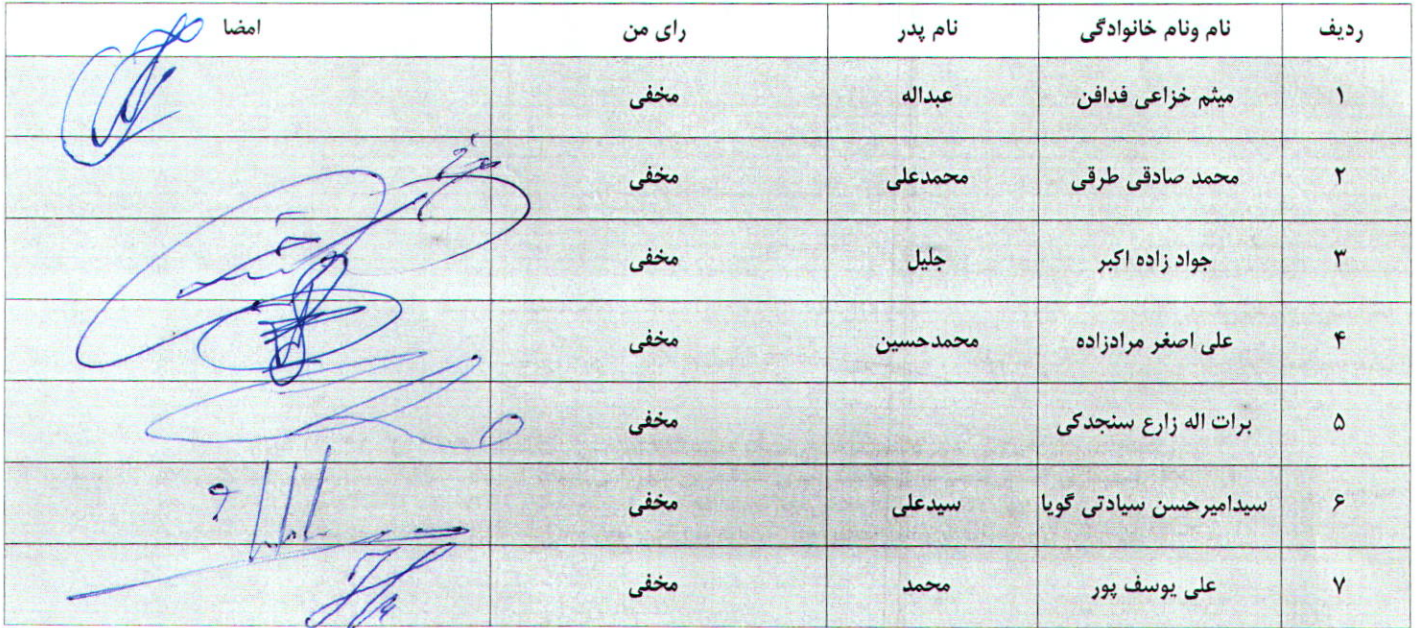 ردیف نام ونام خانوادگی نام پدر رای من امضا
۱ میثم خزاعی فدافن عبداله مخفی
۲ محمد صادقی طرقی محمدعلی مخفی
۳ جواد زاده اکبر جلیل مخفی
۴ علی اصغر مرادزاده محمدحسین مخفی
۵ برات اله زارع سنجدکی مخفی
۶ سیدامیرحسن سیادتی گویا سیدعلی مخفی
۷ علی یوسف پور محمد مخفی